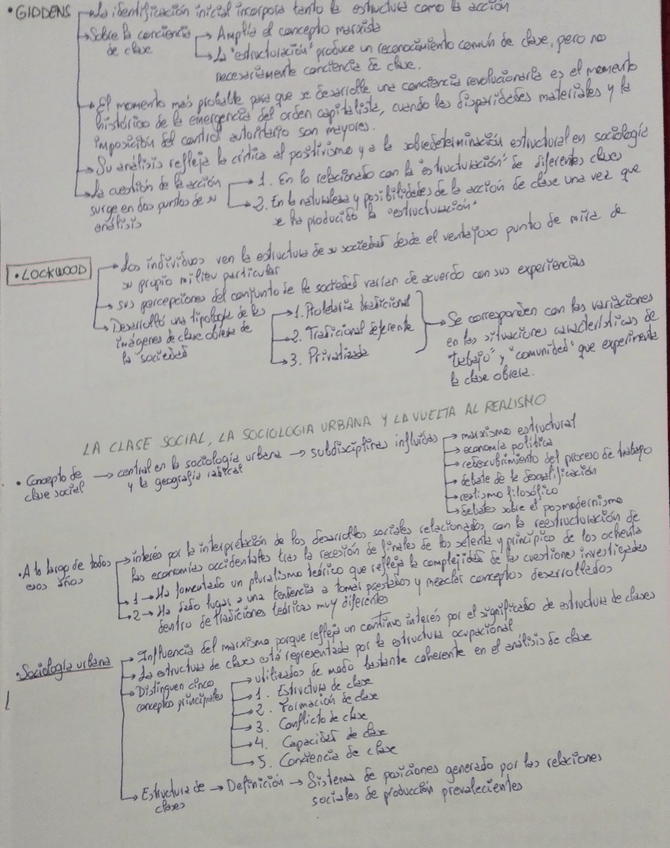 • GIDDENS → La identificación inicial incorpora tanto la estructura como la acción
→ Sobre la conciencia de clase → Amplía el concepto marxista
→ La "estructuración" produce un reconocimiento común de clase, pero no
necesariamente conciencia de clase.
→ El momento más probable para que se desarrolle una conciencia revolucionaria es el momento
histórico de la emergencia del orden capitalista, cuando las disparidades materiales y la
imposición del control autoritario son mayores.
→ Su análisis refleja la crítica al positivismo y a la sobredeterminación estructural en sociología
→ La cuestión de la acción → 1. En lo relacionado con la "estructuración" de diferentes clases
surge en dos puntos de su → 2. En la naturaleza y posibilidades de la acción de clase una vez que
análisis se ha producido la "estructuración"
• LOCKWOOD → Los individuos ven la estructura de su sociedad desde el ventajoso punto de mira de
su propio milieu particular
→ sus percepciones del conjunto de la sociedad varían de acuerdo con sus experiencias
→ Desarrolló una tipología de las → 1. Proletaria tradicional
imágenes de clase obrera de → 2. Tradicional deferente
la sociedad → 3. Privatizada
→ Se corresponden con las variaciones
en las situaciones características de
"trabajo" y "comunidad" que experimenta
la clase obrera.
LA CLASE SOCIAL, LA SOCIOLOGIA URBANA Y LA VUELTA AL REALISMO
• Concepto de → central en la sociología urbana → subdisciplinas influidas → marxismo estructural
clase social y la geografía radical → economía política
→ redescubrimiento del proceso de trabajo
→ debate de la descualificación
→ realismo filosófico
→ debates sobre el posmodernismo
• A lo largo de todos → interés por la interpretación de los desarrollos sociales relacionados con la reestructuración de
esos años las economías occidentales tras la recesión de finales de los setenta y principio de los ochenta
→ 1 → Ha fomentado un pluralismo teórico que refleja la complejidad de las cuestiones investigadas
→ 2 → Ha dado lugar a una tendencia a tomar prestados y mezclar conceptos desarrollados
dentro de tradiciones teóricas muy diferentes
• Sociología urbana → Influencia del marxismo porque refleja un continuo interés por el significado de estructura de clases
→ La estructura de clases está representada por la estructura ocupacional
→ Distinguen cinco → utilizados de modo bastante coherente en el análisis de clase
conceptos principales → 1. Estructura de clase
→ 2. Formación de clase
→ 3. Conflicto de clase
→ 4. Capacidad de clase
→ 5. Conciencia de clase
→ Estructura de → Definición → Sistema de posiciones generado por las relaciones
clases sociales de producción prevalecientes